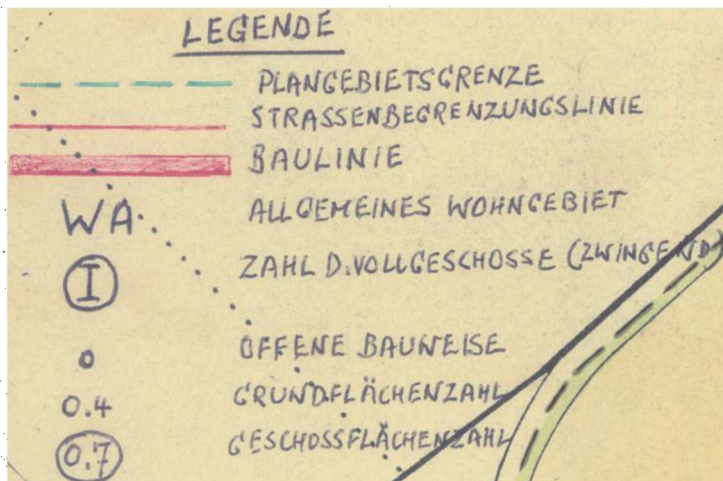 LEGENDE
PLANGEBIETSGRENZE
STRASSENBEGRENZUNGSLINIE
BAULINIE
WA ALLGEMEINES WOHNGEBIET
I ZAHL D. VOLLGESCHOSSE (ZWINGEND)
o OFFENE BAUWEISE
0.4 GRUNDFLÄCHENZAHL
0.7 GESCHOSSFLÄCHENZAHL